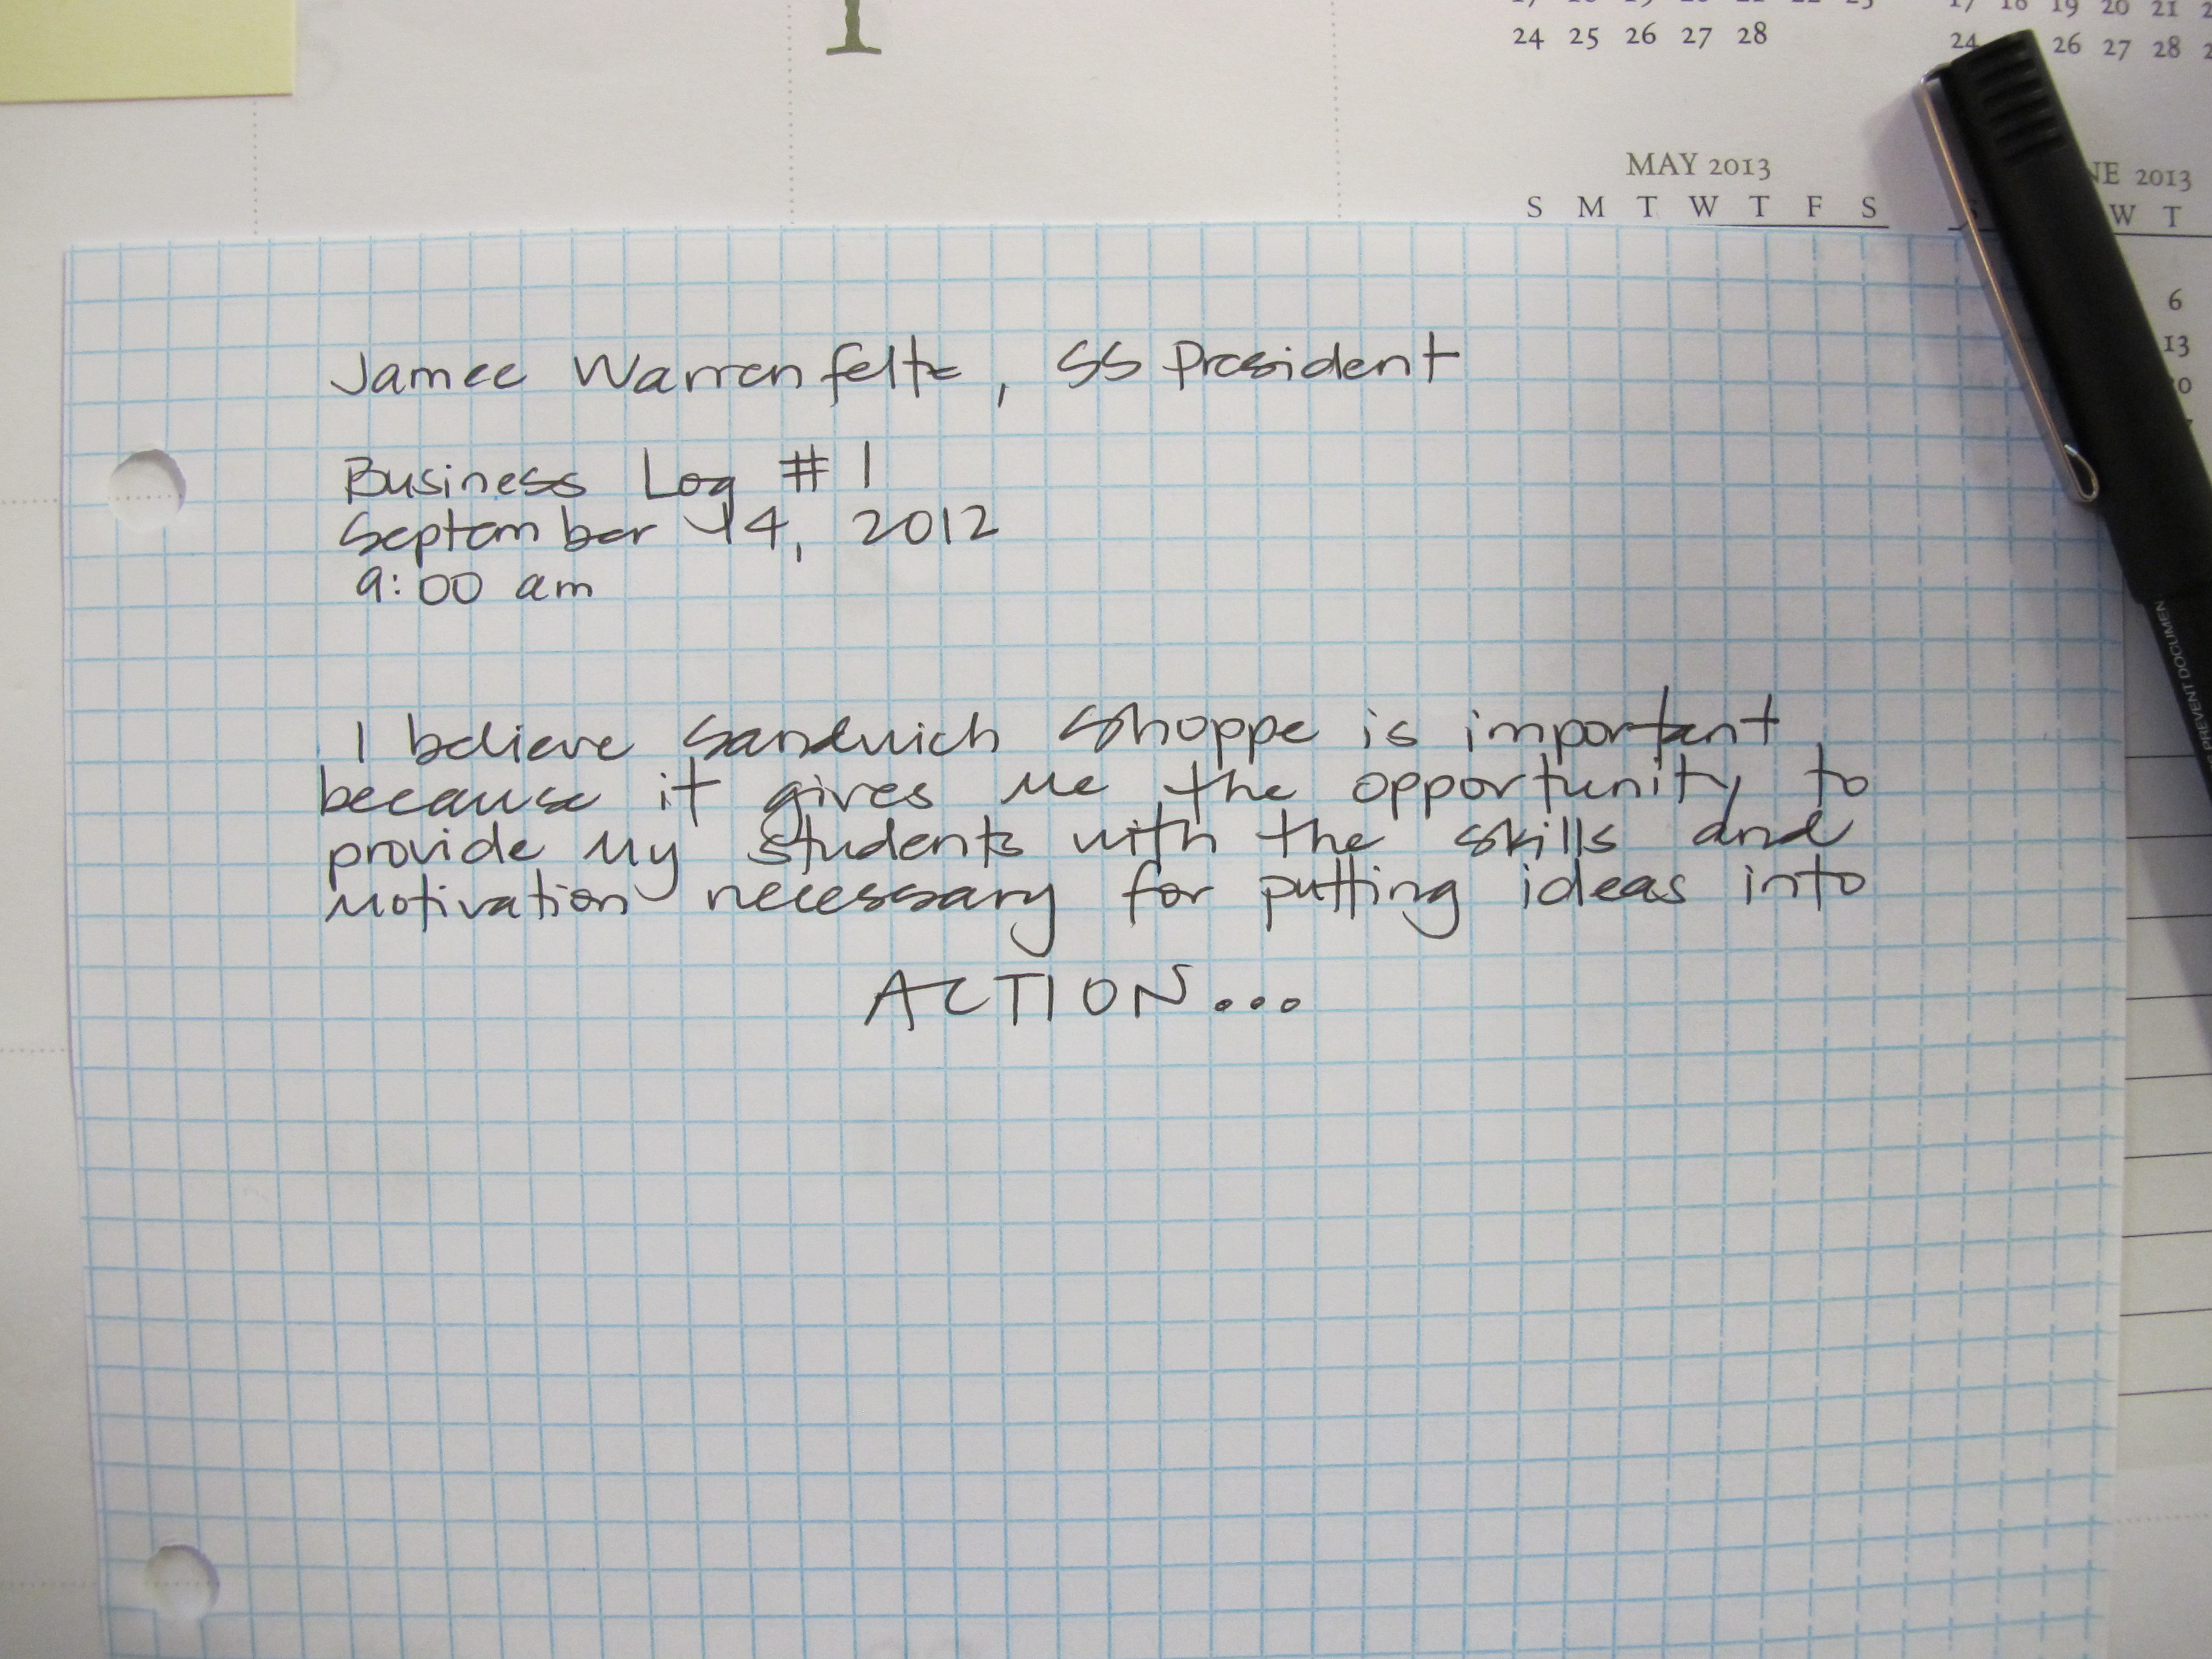 1
17 18 19 20 21 22 23
24 25 26 27 28
17 18 19 20 21
24 26 27 28
MAY 2013
S M T W T F S
NE 2013
W T
6
13
Jamee Warrenfeltz, SS President
Business Log # 1
September 14, 2012
9:00 am
PREVENT DOCUMEN
I believe Sandwich Shoppe is important
because it gives me the opportunity to
provide my students with the skills and
motivation necessary for putting ideas into
ACTION...